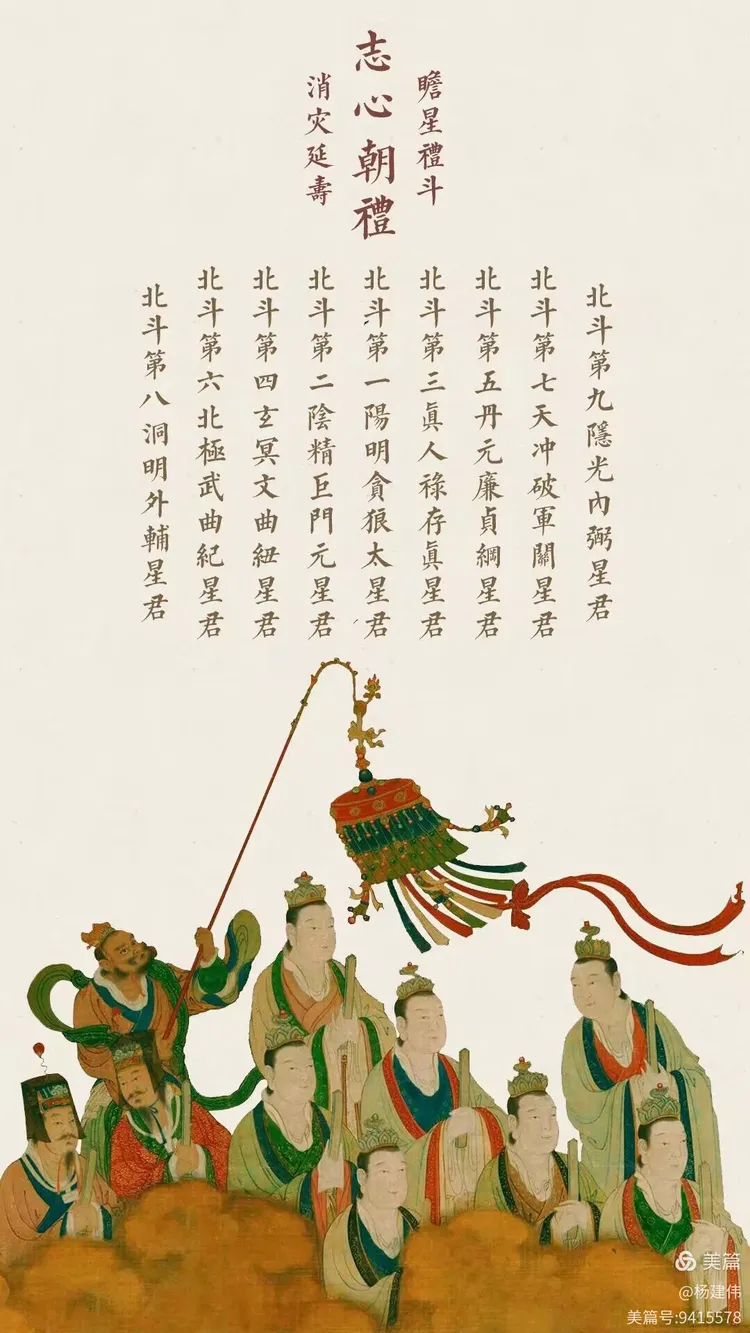 瞻星禮斗
志心朝禮
消灾延壽
北斗第九隱光內弼星君
北斗第七天冲破軍關星君
北斗第五丹元廉貞綱星君
北斗第三眞人祿存眞星君
北斗第一陽明貪狼太星君
北斗第二陰精巨門元星君
北斗第四玄冥文曲紐星君
北斗第六北極武曲紀星君
北斗第八洞明外輔星君
美篇
@杨建伟
美篇号:9415578